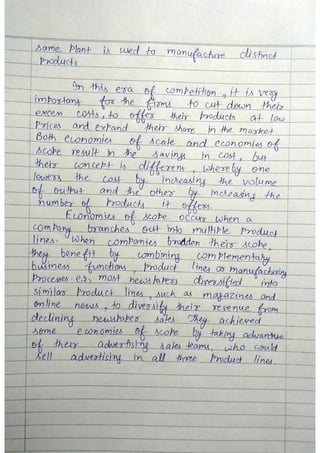 same plant is used to manufacture distinct
products.
In this era of competition, it is very
important for the firms to cut down their
excess costs, to offer their products at low
prices and expand their share in the market.
Both economies of scale and economies of
scope result in the savings in cost, but
their concept is different, whereby one
lowers the cost by increasing the volume
of output and the other by increasing the
number of products it offers.
Economies of scope occur when a
company branches out into multiple product
lines. When companies broaden their scope,
they benefit by combining complementary
business functions, product lines or manufacturing
processes. e.g., most newspapers diversified into
similar product lines, such as magazines and
online news, to diversify their revenue from
declining newspaper sales. They achieved
some economies of scope by taking advantage
of their advertising sales teams, who could
sell advertising in all three product lines.